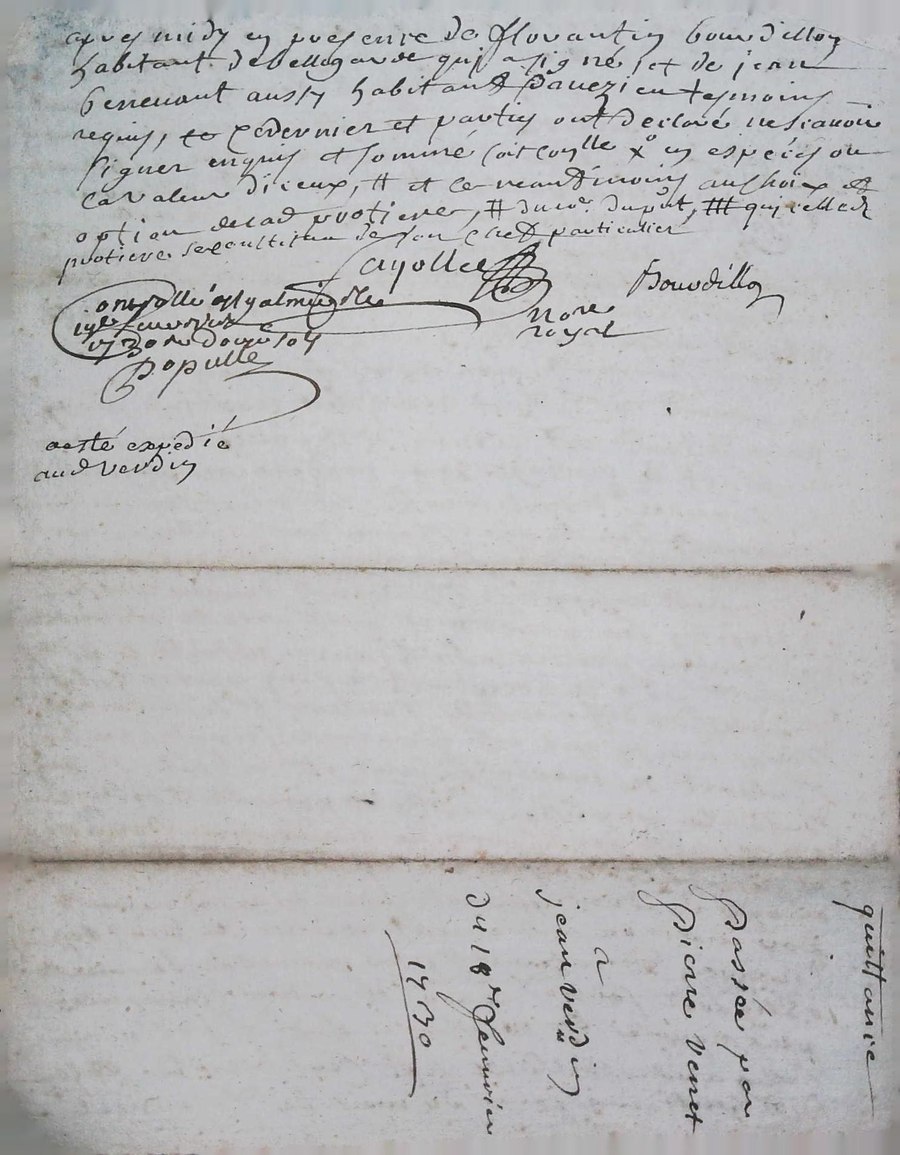 apres midy en presence de florantin bourdillon
habitant de bellegarde qui a signé, et de jean
benevant aussy habitant d'auezieu tesmoins
requis, ce dernier et parties ont declaré ne scauoir
signer enquis et sommé en especes ou
la valeur d'iceux, # et ce neantmoins au choix et
option de lad protiere, # du put, ## qui
protiere de son chef particulier
ayolle Bourdillon
no.re
royal
douze sols
Populle
a esté expedié
aud verdin
quittance
Passée par
Pierre Venet
a
jean verdin
du 18e Januier
1730